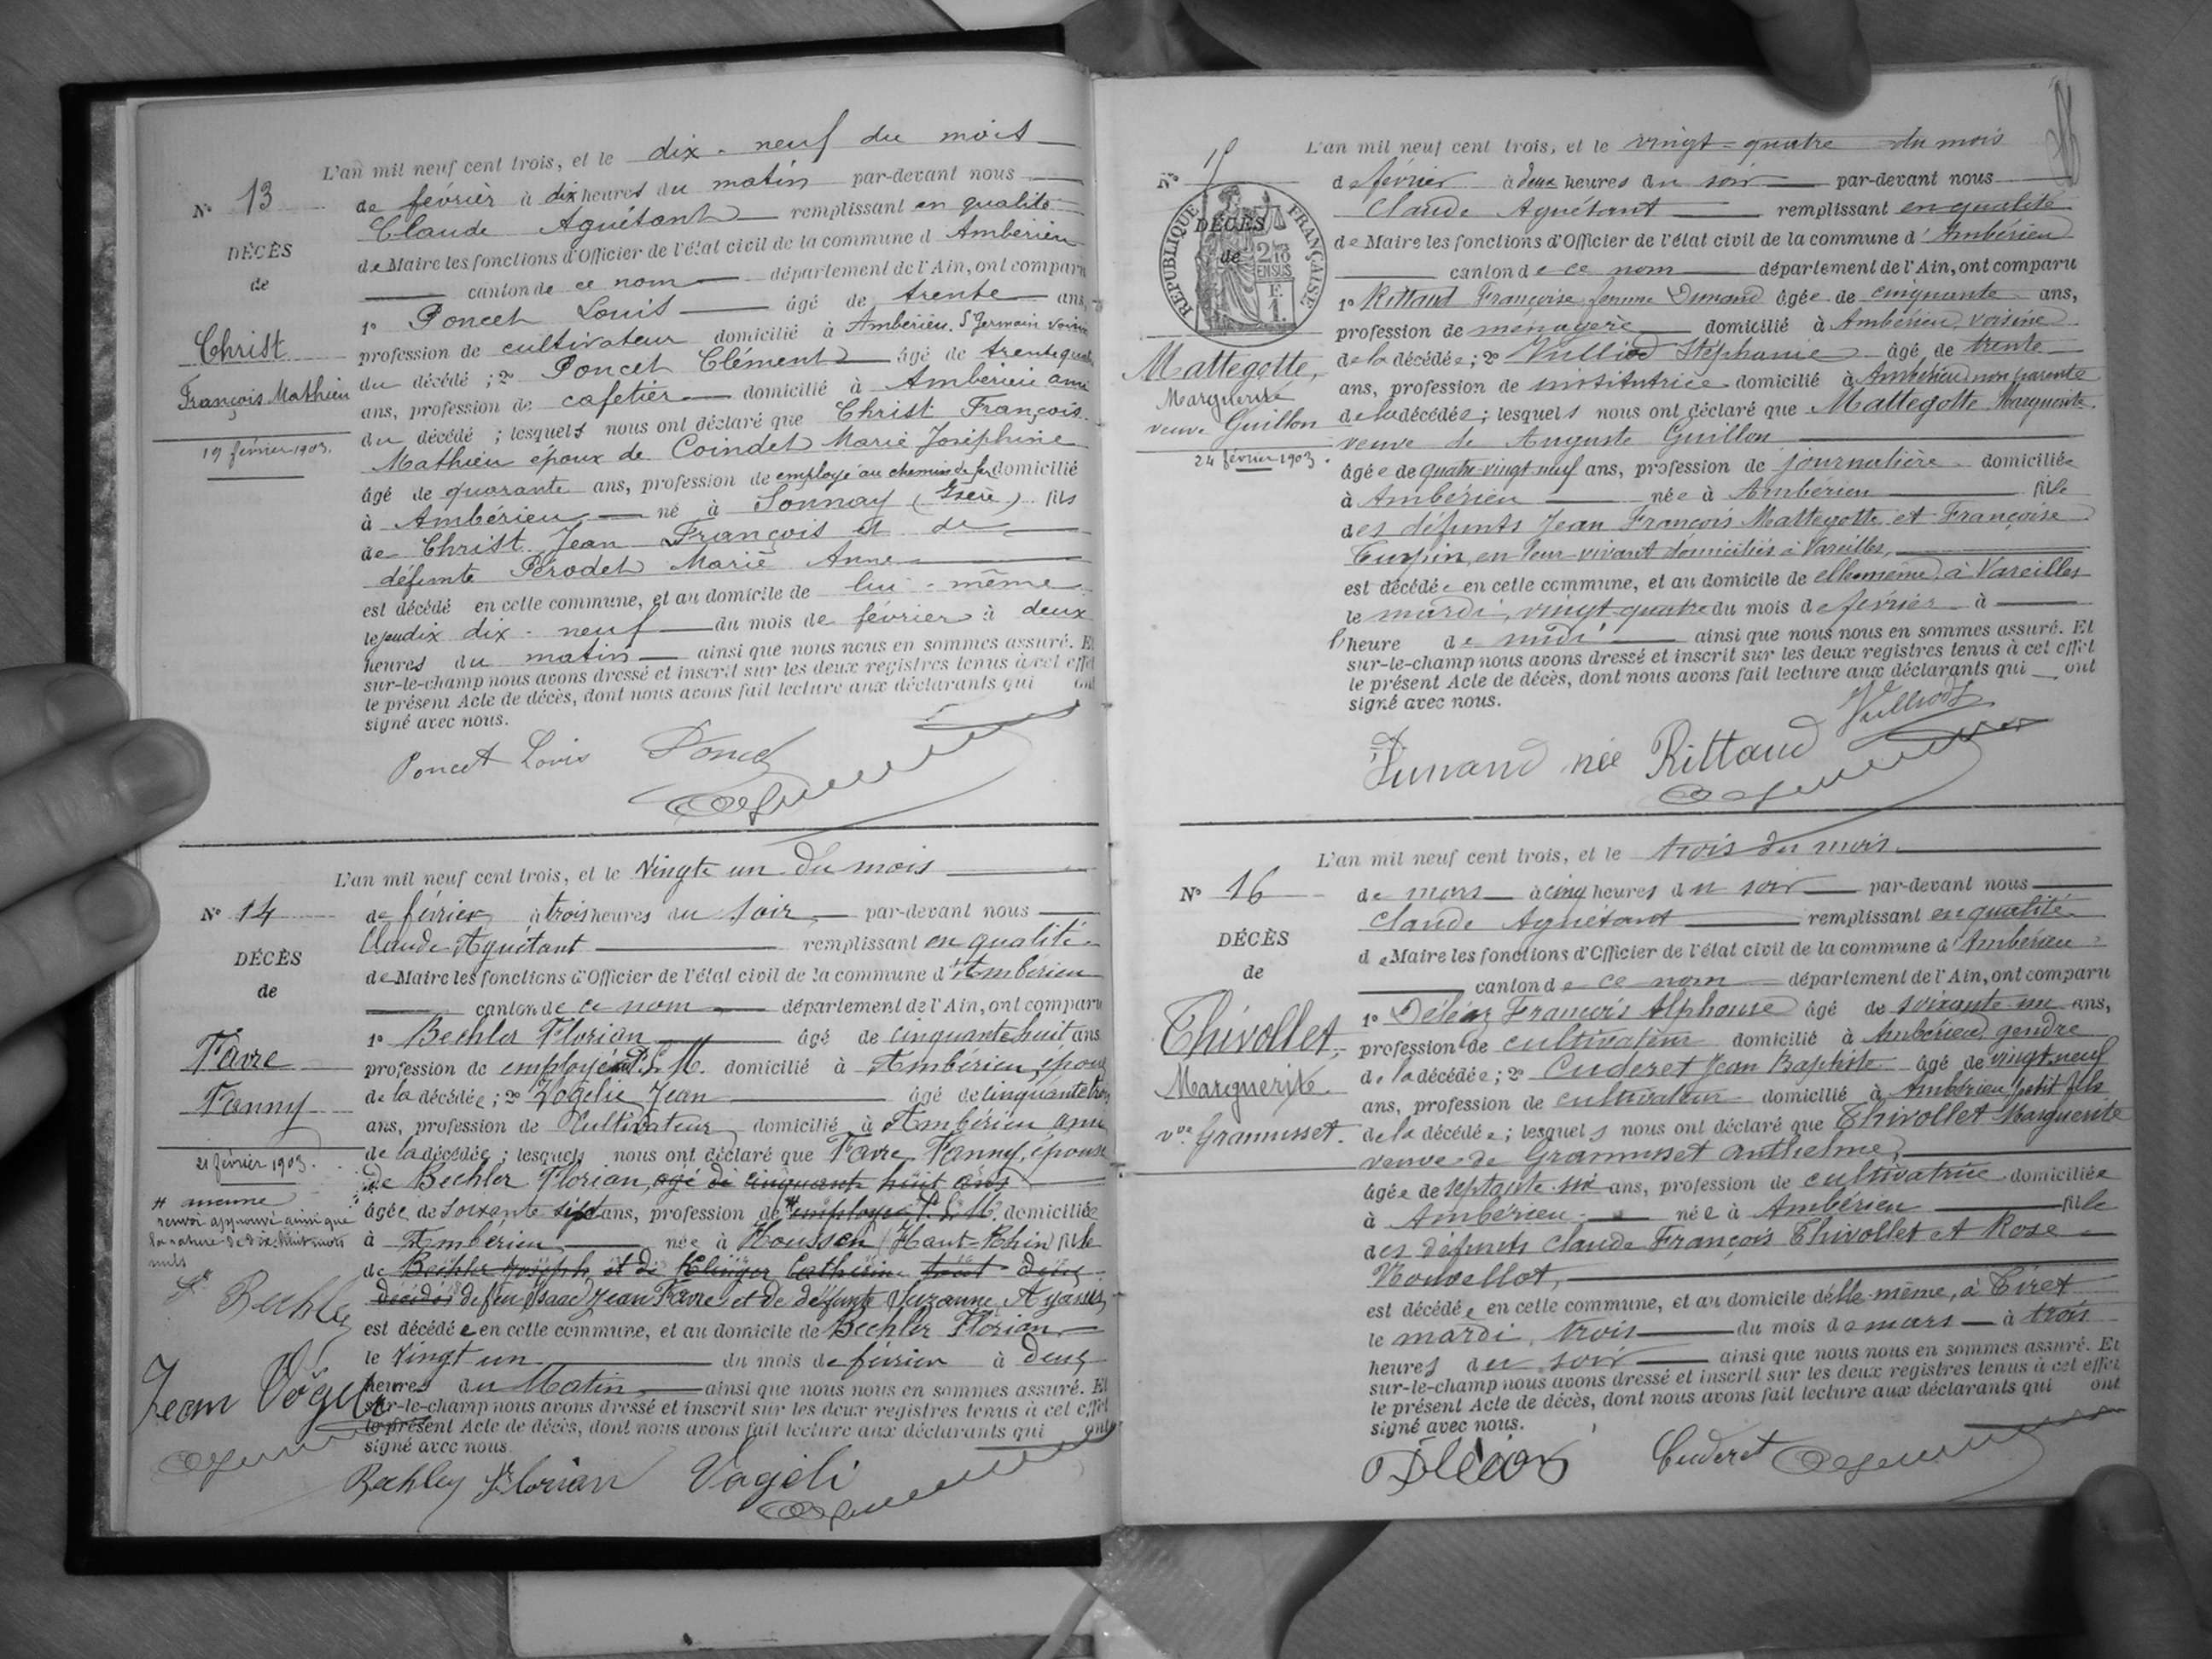 L'an mil neuf cent trois, et le dix-neuf du mois
N° 13
de février à dix heures du matin par-devant nous
Claude Aguétant remplissant en qualité
DÉCÈS
de Maire les fonctions d'Officier de l'état civil de la commune d Ambérieu
de
canton de ce nom département de l'Ain, ont comparu
1° Poncet Louis âgé de trente ans,
Christ
profession de cultivateur domicilié à Ambérieu. St Germain voisin
François Mathieu
du décédé ; 2° Poncet Clément âgé de trente quatre
ans, profession de cafetier domicilié à Ambérieu ami
19 février 1903.
du décédé ; lesquels nous ont déclaré que Christ François
Mathieu époux de Coindet Marie Joséphine
âgé de quarante ans, profession de employé au chemin de fer domicilié
à Ambérieu né à Sonnay (Isère) fils
de Christ Jean François et de
défunte Pérodet Marie Anne
est décédé en cette commune, et au domicile de lui-même
le jeudix dix-neuf du mois de février à deux
heures du matin ainsi que nous nous en sommes assuré. Et
sur-le-champ nous avons dressé et inscrit sur les deux registres tenus à cet effet
le présent Acte de décès, dont nous avons fait lecture aux déclarants qui ont
signé avec nous.
Poncet Louis Poncet
L'an mil neuf cent trois, et le Vingt un du mois
N° 14
de février à trois heures du soir par-devant nous
Claude Aguétant remplissant en qualité
DÉCÈS
de Maire les fonctions d'Officier de l'état civil de la commune d'Ambérieu
de
canton de ce nom département de l'Ain, ont comparu
1° Bechler Florian âgé de cinquante huit ans
Favre
profession de employé au P. L. M. domicilié à Ambérieu, époux
Fanny
de la décédée ; 2° Vogelie Jean âgé de cinquante trois
ans, profession de Cultivateur domicilié à Ambérieu ami
21 février 1903.
de la décédée ; lesquels nous ont déclaré que Favre Fanny, épouse
de Bechler Florian, agé de cinquante huit ans
# aucune
renvoi approuvé ainsi que
la rature de dix-huit mots
nuls
âgée de soixante sept ans, profession de # employé P. L. M. domiciliée
à Ambérieu née à Houssen (Haut-Rhin) fille
de Bechler Joseph et de Catherine tous deux
décédés de feu Isaac Jean Favre et de défunte Suzanne
Fn Bechler
est décédée en cette commune, et au domicile de Bechler Florian
le Vingt un du mois de février à deux
Jean Vögeli
heures du Matin ainsi que nous nous en sommes assuré. Et
sur-le-champ nous avons dressé et inscrit sur les deux registres tenus à cet effet
le présent Acte de décès, dont nous avons fait lecture aux déclarants qui ont
signé avec nous.
Bechler Florian Vogeli
L'an mil neuf cent trois, et le vingt-quatre du mois
N° 15
de février à deux heures du soir par-devant nous
Claude Aguétant remplissant en qualité
RÉPUBLIQUE FRANÇAISE
DÉCÈS
2/10 EN SUS
F. 1.
de Maire les fonctions d'Officier de l'état civil de la commune d'Ambérieu
de
canton de ce nom département de l'Ain, ont comparu
1° Rittaud Françoise femme Dunand âgée de cinquante ans,
profession de ménagère domicilié à Ambérieu, voisine
Mattegotte,
Marguerite
veuve Guillon
24 février 1903.
de la décédée ; 2° Vulliod Stéphanie âgé de trente
ans, profession de institutrice domicilié à Ambérieu non parente
de la décédée ; lesquels nous ont déclaré que Mattegotte Marguerite
veuve de Auguste Guillon
âgée de quatre-vingt-neuf ans, profession de journalière domiciliée
à Ambérieu née à Ambérieu fille
des défunts Jean François Mattegotte et Françoise
Turpin, en leur vivant domiciliés à Vareilles,
est décédée en cette commune, et au domicile de elle-même, à Vareilles
le mardi, vingt-quatre du mois de février à
l'heure de midi ainsi que nous nous en sommes assuré. Et
sur-le-champ nous avons dressé et inscrit sur les deux registres tenus à cet effet
le présent Acte de décès, dont nous avons fait lecture aux déclarants qui ont
signé avec nous.
Vulliod
F. Dunand née Rittaud
L'an mil neuf cent trois, et le trois du mois
N° 16
de mars à cinq heures du soir par-devant nous
Claude Aguétant remplissant en qualité
DÉCÈS
de Maire les fonctions d'Officier de l'état civil de la commune d'Ambérieu
de
canton de ce nom département de l'Ain, ont comparu
1° Déléaz François Alphonse âgé de soixante-un ans,
Thivollet,
profession de cultivateur domicilié à Ambérieu, gendre
de la décédée ; 2° Cuderet Jean Baptiste âgé de vingt-neuf
Marguerite
ans, profession de cultivateur domicilié à Ambérieu petit fils
vve Grammsset.
de la décédée ; lesquels nous ont déclaré que Thivollet Marguerite
veuve de Grammsset Anthelme,
âgée de septante-six ans, profession de cultivatrice domiciliée
à Ambérieu née à Ambérieu fille
des défunts Claude François Thivollet et Rose
Nouvellot,
est décédée en cette commune, et au domicile d'elle-même, à Tiret
le mardi, trois du mois de mars à trois
heures du soir ainsi que nous nous en sommes assuré. Et
sur-le-champ nous avons dressé et inscrit sur les deux registres tenus à cet effet
le présent Acte de décès, dont nous avons fait lecture aux déclarants qui ont
signé avec nous.
Cuderet